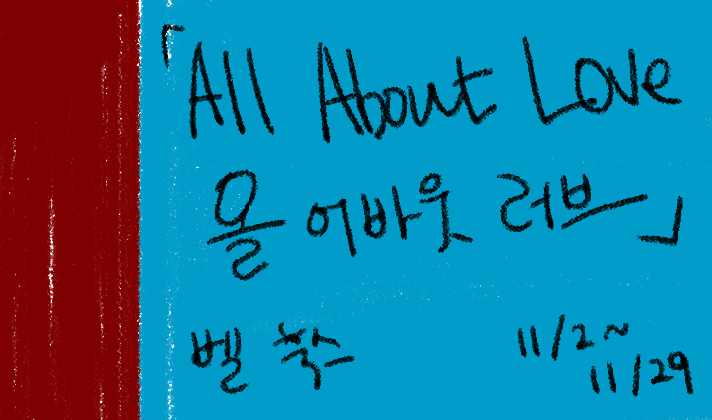 「All About Love
올 어바웃 러브」
벨 훅스 11/2~
11/29